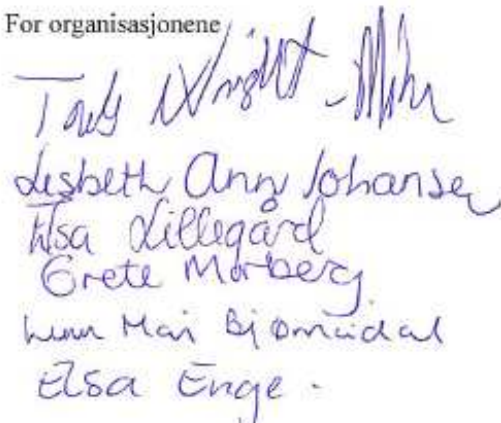 For organisasjonene
Wright
Lisbeth Ann Johansen
Elsa Lillegård
Grete Morberg
Mari Bjørnådal
Elsa Enge.